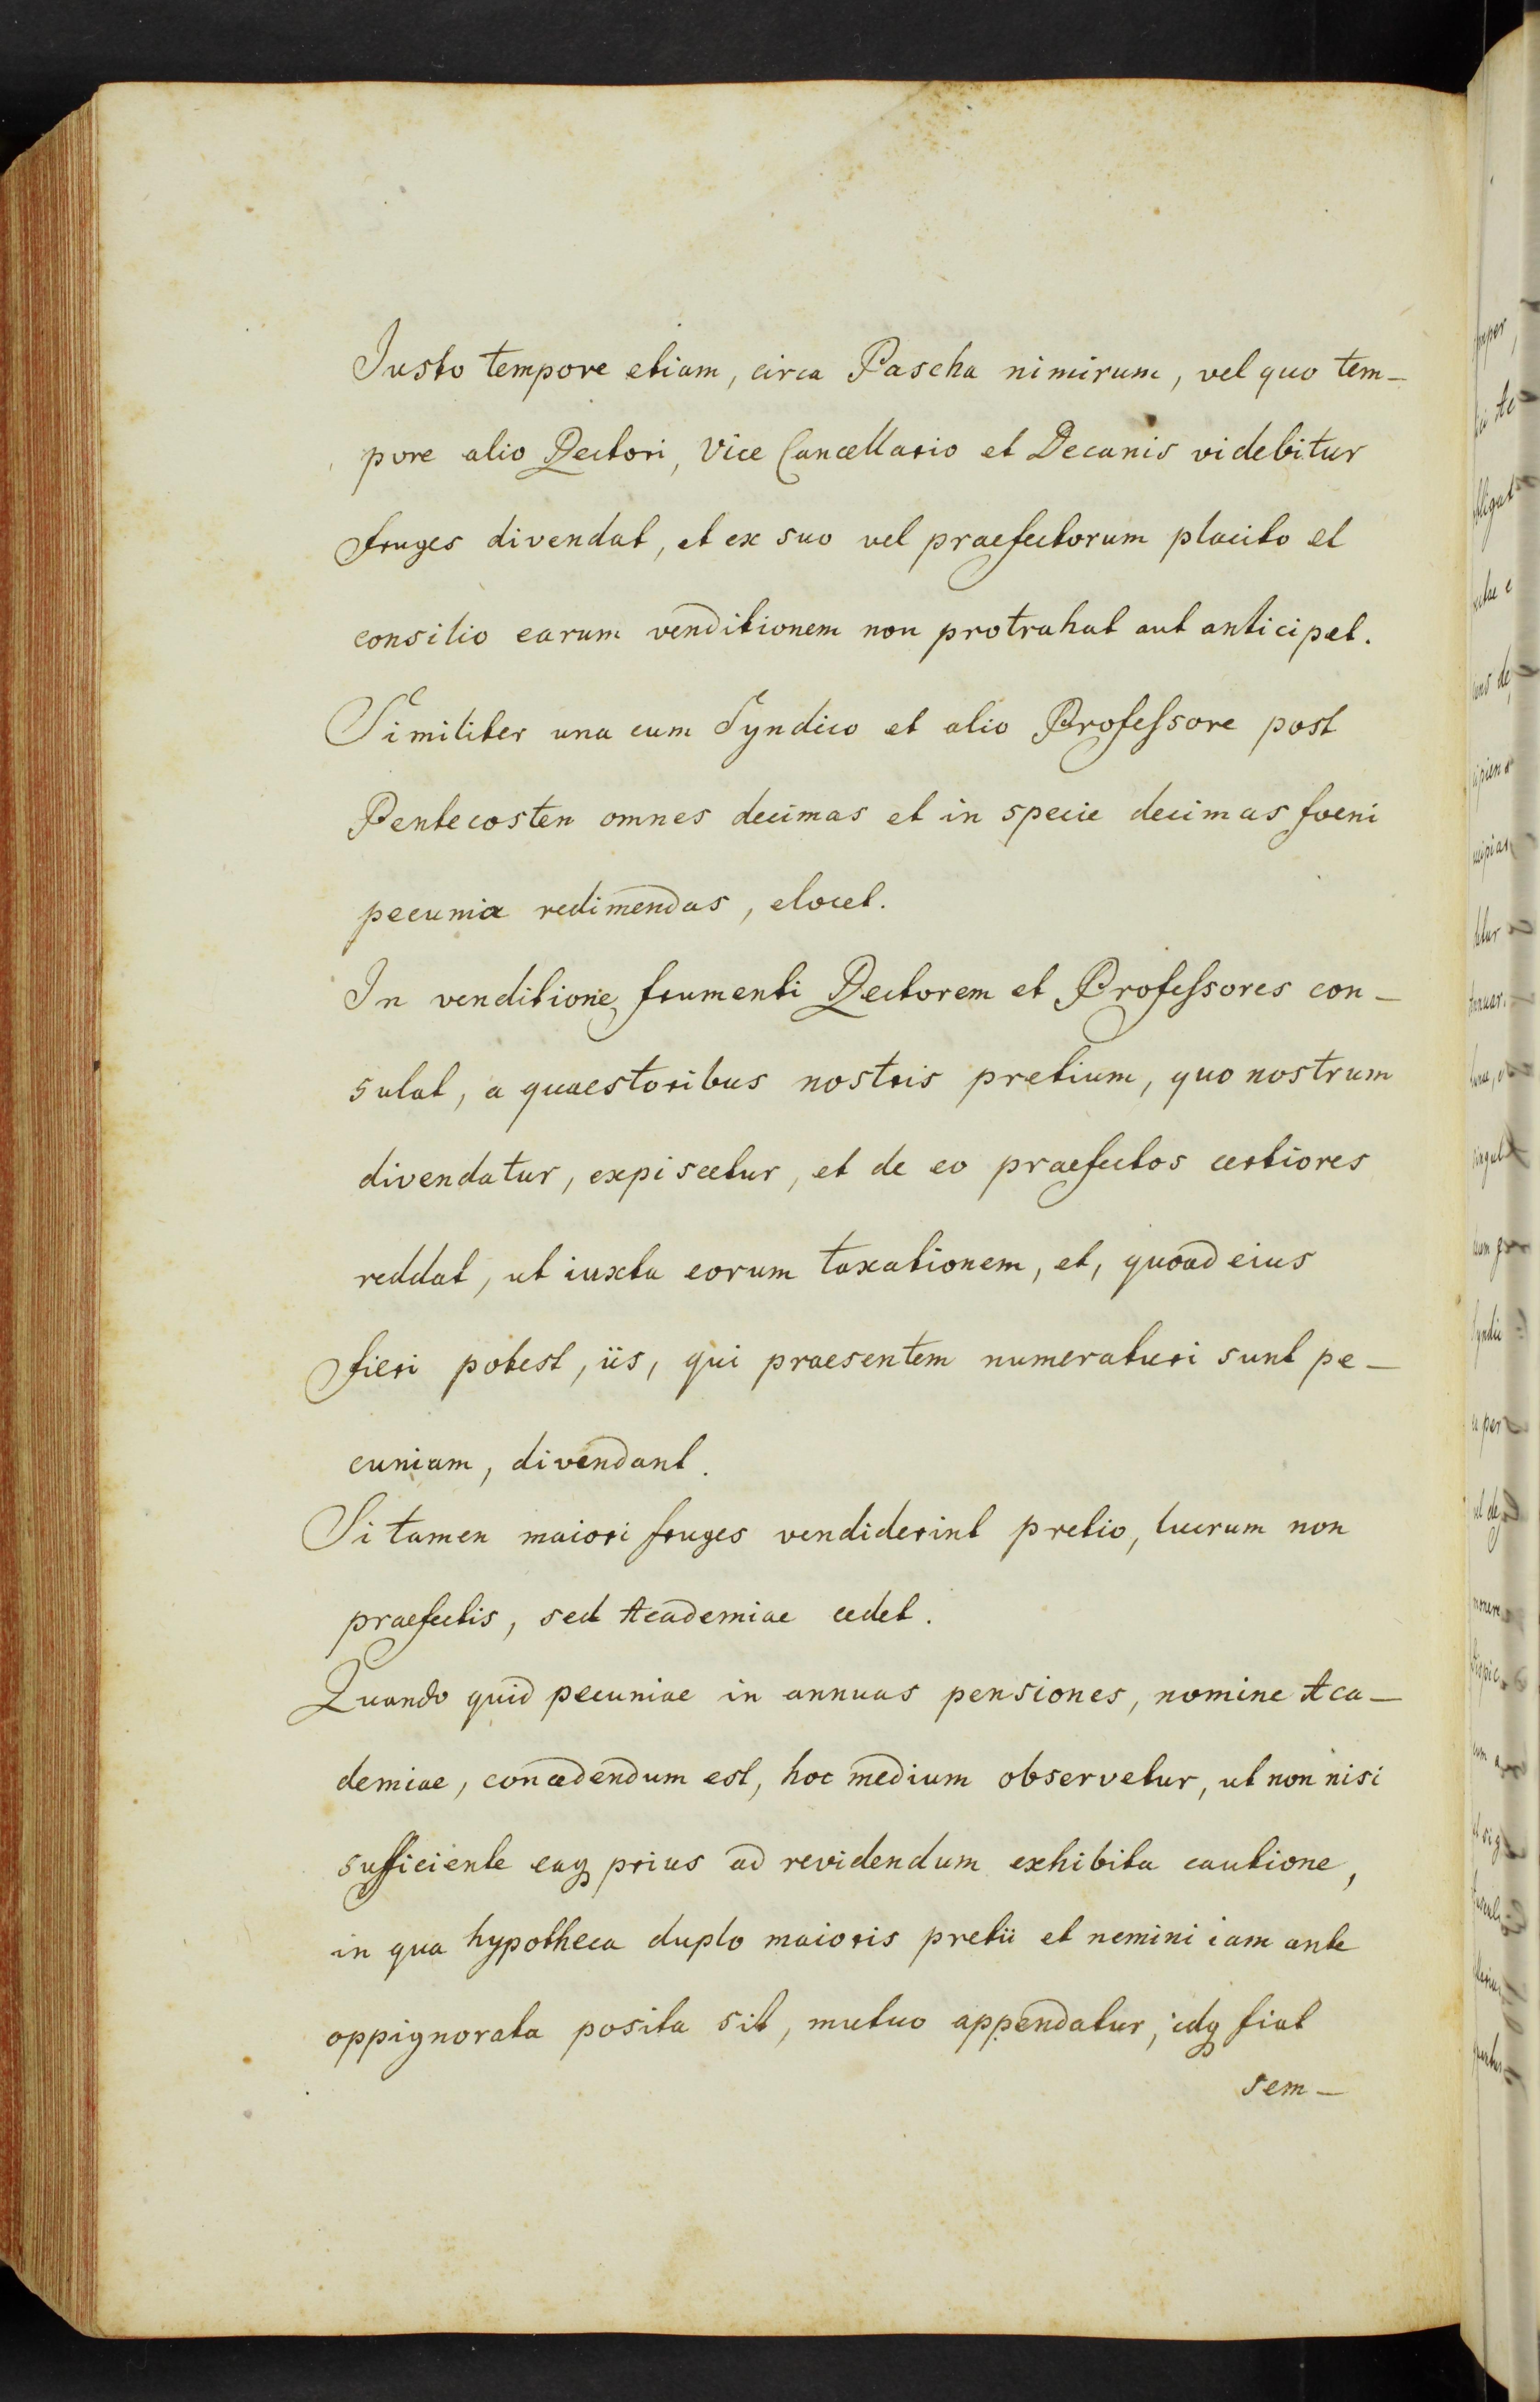 Iusto tempore etiam, circa Pascha nimirum, vel quo tem-
pore alio Rectori, Vice Cancellario et Decanis videbitur
fruges divendat, et ex suo vel praefectorum placito et
consilio earum venditionem non protrahat aut anticipet.
Similiter una cum Syndico et alio Professore post
Pentecosten omnes decimas et in specie decimas foeni
pecunia redimendas, elocet.
In venditione frumenti Rectorem et Professores con-
sulat, a quaestoribus nostris pretium, quo nostrum
divendatur, expiscetur, et de eo praefectos certiores
reddat, ut iuxta eorum taxationem, et, quoad eius
fieri potest, iis, qui praesentem numeraturi sunt pe-
cuniam, divendant.
Si tamen maiori fruges vendiderint pretio, lucrum non
praefectis, sed Academiae cedet.
Quando quid pecuniae in annuas pensiones, nomine Aca-
demiae, concedendum est, hoc medium observetur, ut non nisi
sufficiente eaq prius ad revidendum exhibita cautione,
in qua hypotheca duplo maioris pretii et nemini iam ante
oppignorata posita sit, mutuo appendatur, idq fiat
sem-